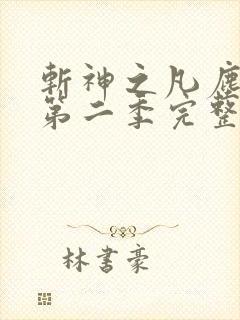 斬神之凡塵
第二季完整
林書豪